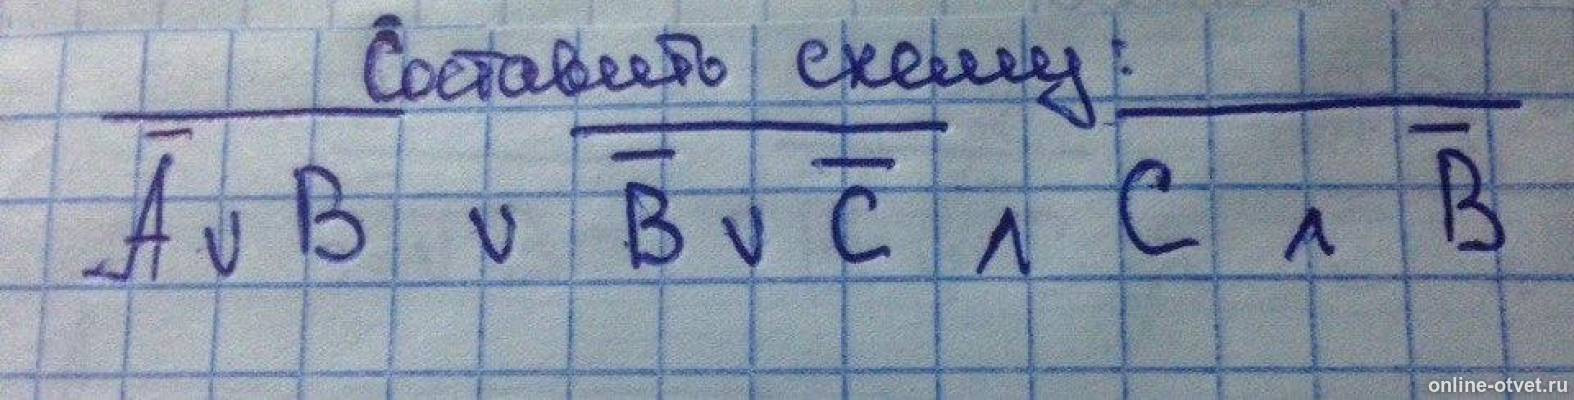 Составить схему:
$\overline{\overline{A} \vee B} \vee \overline{\overline{B} \vee \overline{C}} \wedge \overline{C \wedge \overline{B}}$
online-otvet.ru